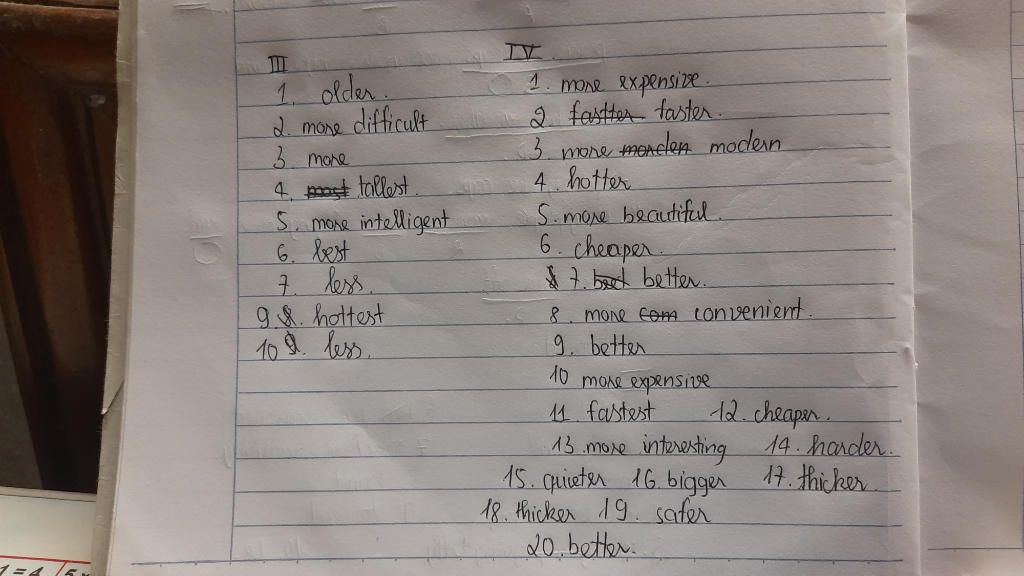 III
1. older.
2. more difficult
3. more
4. most tallest.
5. more intelligent
6. best
7. less.
9 8. hottest
10 9. less.
IV
1. more expensive.
2. fastter faster.
3. more morden modern
4. hotter
5. more beautiful.
6. cheaper.
8 7. best better.
8. more com convenient.
9. better
10 more expensive
11. fastest 12. cheaper.
13. more interesting 14. harder.
15. quieter 16. bigger 17. thicker.
18. thicker 19. safer
20. better.
1 = 4